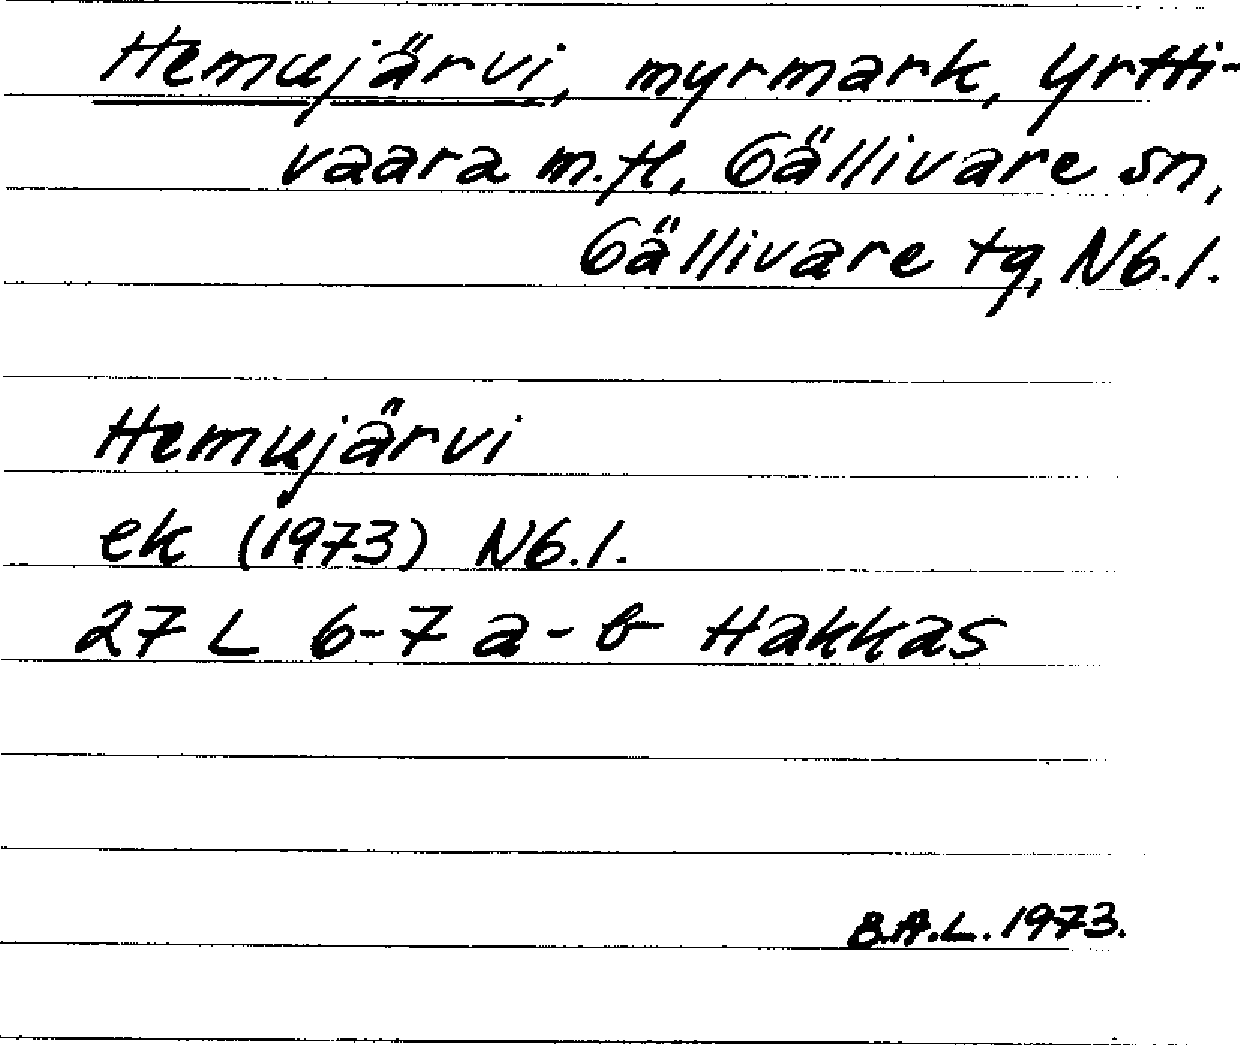 Hemujärvi, myrmark, Yrtti-
vaara m.fl, Gällivare sn,
Gällivare tg, Nb.l.
Hemujärvi
ek (1973) Nb.l.
27 L 6-7 a-b Hakkas
B.A.L. 1973.